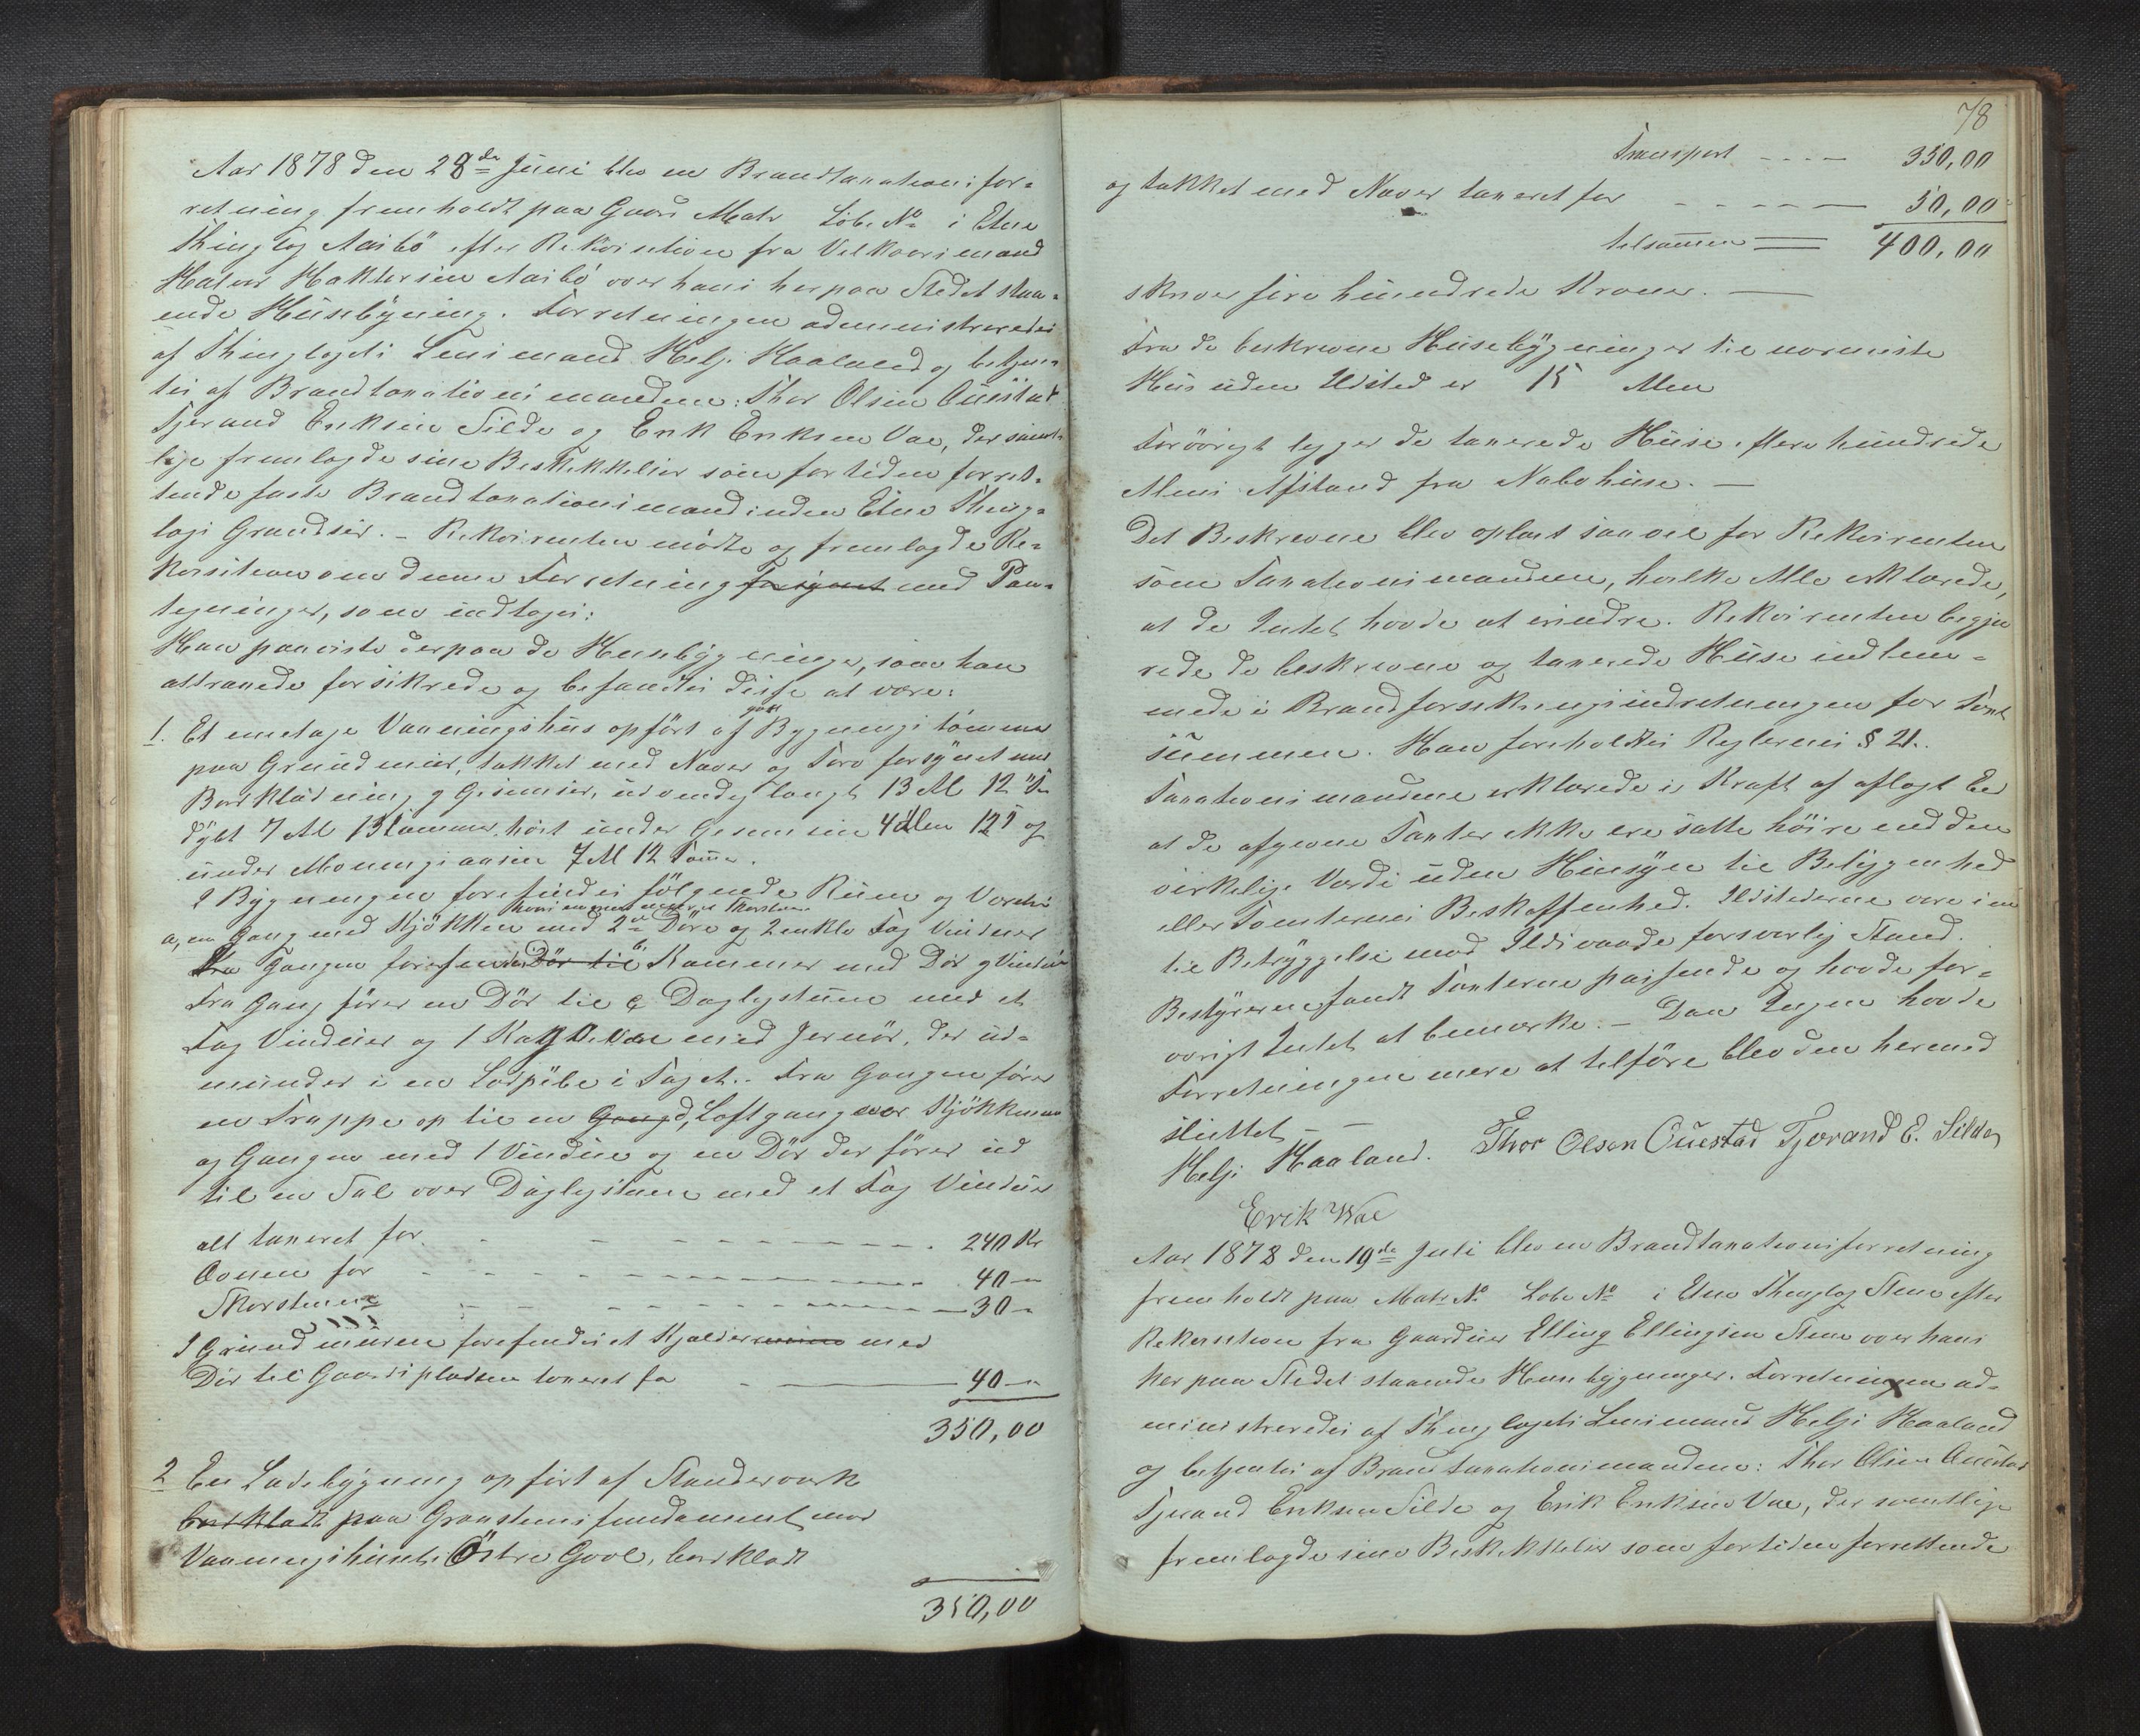 Aar 1878 den 28de Juni blev en Brandtaxationsfor-
retning fremholdt paa Gaard Matr Löbe No i Etne
Thinglag Aasbö efter Rekvisition fra Velkaarsmand
Halvor Aasbö over hans herpaa Stedet staa-
ende Huusbÿgning. Forretningen administreredes
af Thinglagets Lensmand Helje Haaland og betjen-
tes af Brandtaxationsmændene: Thor Olsen Ouestad
Tjerand Eriksen Silde og Erik Eriksen Vae, der samt-
lige fremlagde sine Beskikkelser som for tiden forret-
tende faste Brandtaxationsmænd inden Etne Thing-
lags Grændser. - Rekvirenten mödte og fremlagde Re-
kvisitionen om denne Forretning forsÿnet med Paa-
tegninger, som indtages:
Han paaviste derpaa de Huusbÿgninger, som han
attraaede forsikrede og befandtes disse at være:
1. Et eenetages Vaaningshus opfört af godt Bygningstömmer
paa Grundmuur, tækket med Næver og Törv forsÿnet med
Bordklædning og Gesimser, udvendig langt 13 Al 12 "
dÿbt 7 Al 13 Tommer, höit under Gesimsen 4 Alen 12 T og
under Mönningsaasen 7 Al 12 Tomme.
I Bygningen forefindes fölgende Rum og Værelser
a, en Gang med Kjökken hvori en med 2de Döre og 2 enkle Fag Vinduer
Fra Gangen forefindes Dör til b, Kammer med Dör og Vindue
Fra Gang förer en Dör til c Daglystuen med et
Fag Vinduer og 1 Kakkelovn med Jernrör, der ud-
munder i en Lodpibe i Taget. Fra Gangen förer
en Trappe op til en Gang d, Loftgang over Kjökkenen
og Gangen med 1 Vindue og en Dör der förer ud
til en Sal over Daglystuen med et Fag Vinduer
alt taxeret for - - - 240 Kr
Ovnen for - - - 40 -
Skorstenen - - - 30 -
I Grundmuren forefindes et Kjelderrum med
Dör til Gaardspladsen taxeret for - 40 -
350,00
2 En Ladebÿgning opfört af Standerværk
bordklædt paa Graastensfundament mod
Vaaningshusets Östre Gavl, bordklædt
350,00
78
Transport - - - - 350,00
og tækket med Næver taxeret for - - - - 50,00
tilsammen = 400,00
skriver fire hundrede Kroner. -
Fra de beskrevne Husebÿgninger til nærmeste
Hus uden Ildsted er 15 Alen
Forövrigt ligger de taxerede Huse flere hundrede
Alens Afstand fra Nabohuse. -
Det Beskrevne blev oplæst saavel for Rekvirenten
som Taxationsmændene, hvilke Alle erklærede,
at de Intet havde at erindre. Rekvirenten begjæ
rede de beskrevne og taxerede Huse indlem-
mede i Brandforsikringsindretningen for Taxt
summen. Han foreholdtes Reglernes § 21.
Taxationsmændene erklærede i Kraft af aflagt Eed
at de afgivne Taxter ikke ere satte höiere end den
virkelige Værdi uden Hensÿn til Beligenhed
eller Tomternes Beskaffenhed. Ildstederne vare i en
til Betrÿggelse mod Ildsvaade forsvarlig Stand.
Bestÿreren fandt Taxterne passende og havde for-
övrigt Intet at bemærke. - Daa Ingen havde
Forretningen mere at tilföre blev den hermed
sluttet - -
Helje Haaland. Thor Olsen Ouestad Tjerand E. Silde
Erik Wae
Aar 1878 den 19de Juli blev en Brandtaxationsforretning
fremholdt paa Matr No Löbe No i Etne Thinglag Stene efter
Rekvisition fra Gaardeier Elling Ellingsen Stene over hans
her paa Stedet staaende Husebygninger. Forretningen ad-
ministreredes af Thinglagets Lensmand Helje Haaland
og betjentes af Brandtaxationsmændene: Thor Olsen Ouestad
Tjerand Eriksen Silde og Erik Eriksen Vae, der samtlige
fremlagde sine Beskikkelser som for tiden forrettende